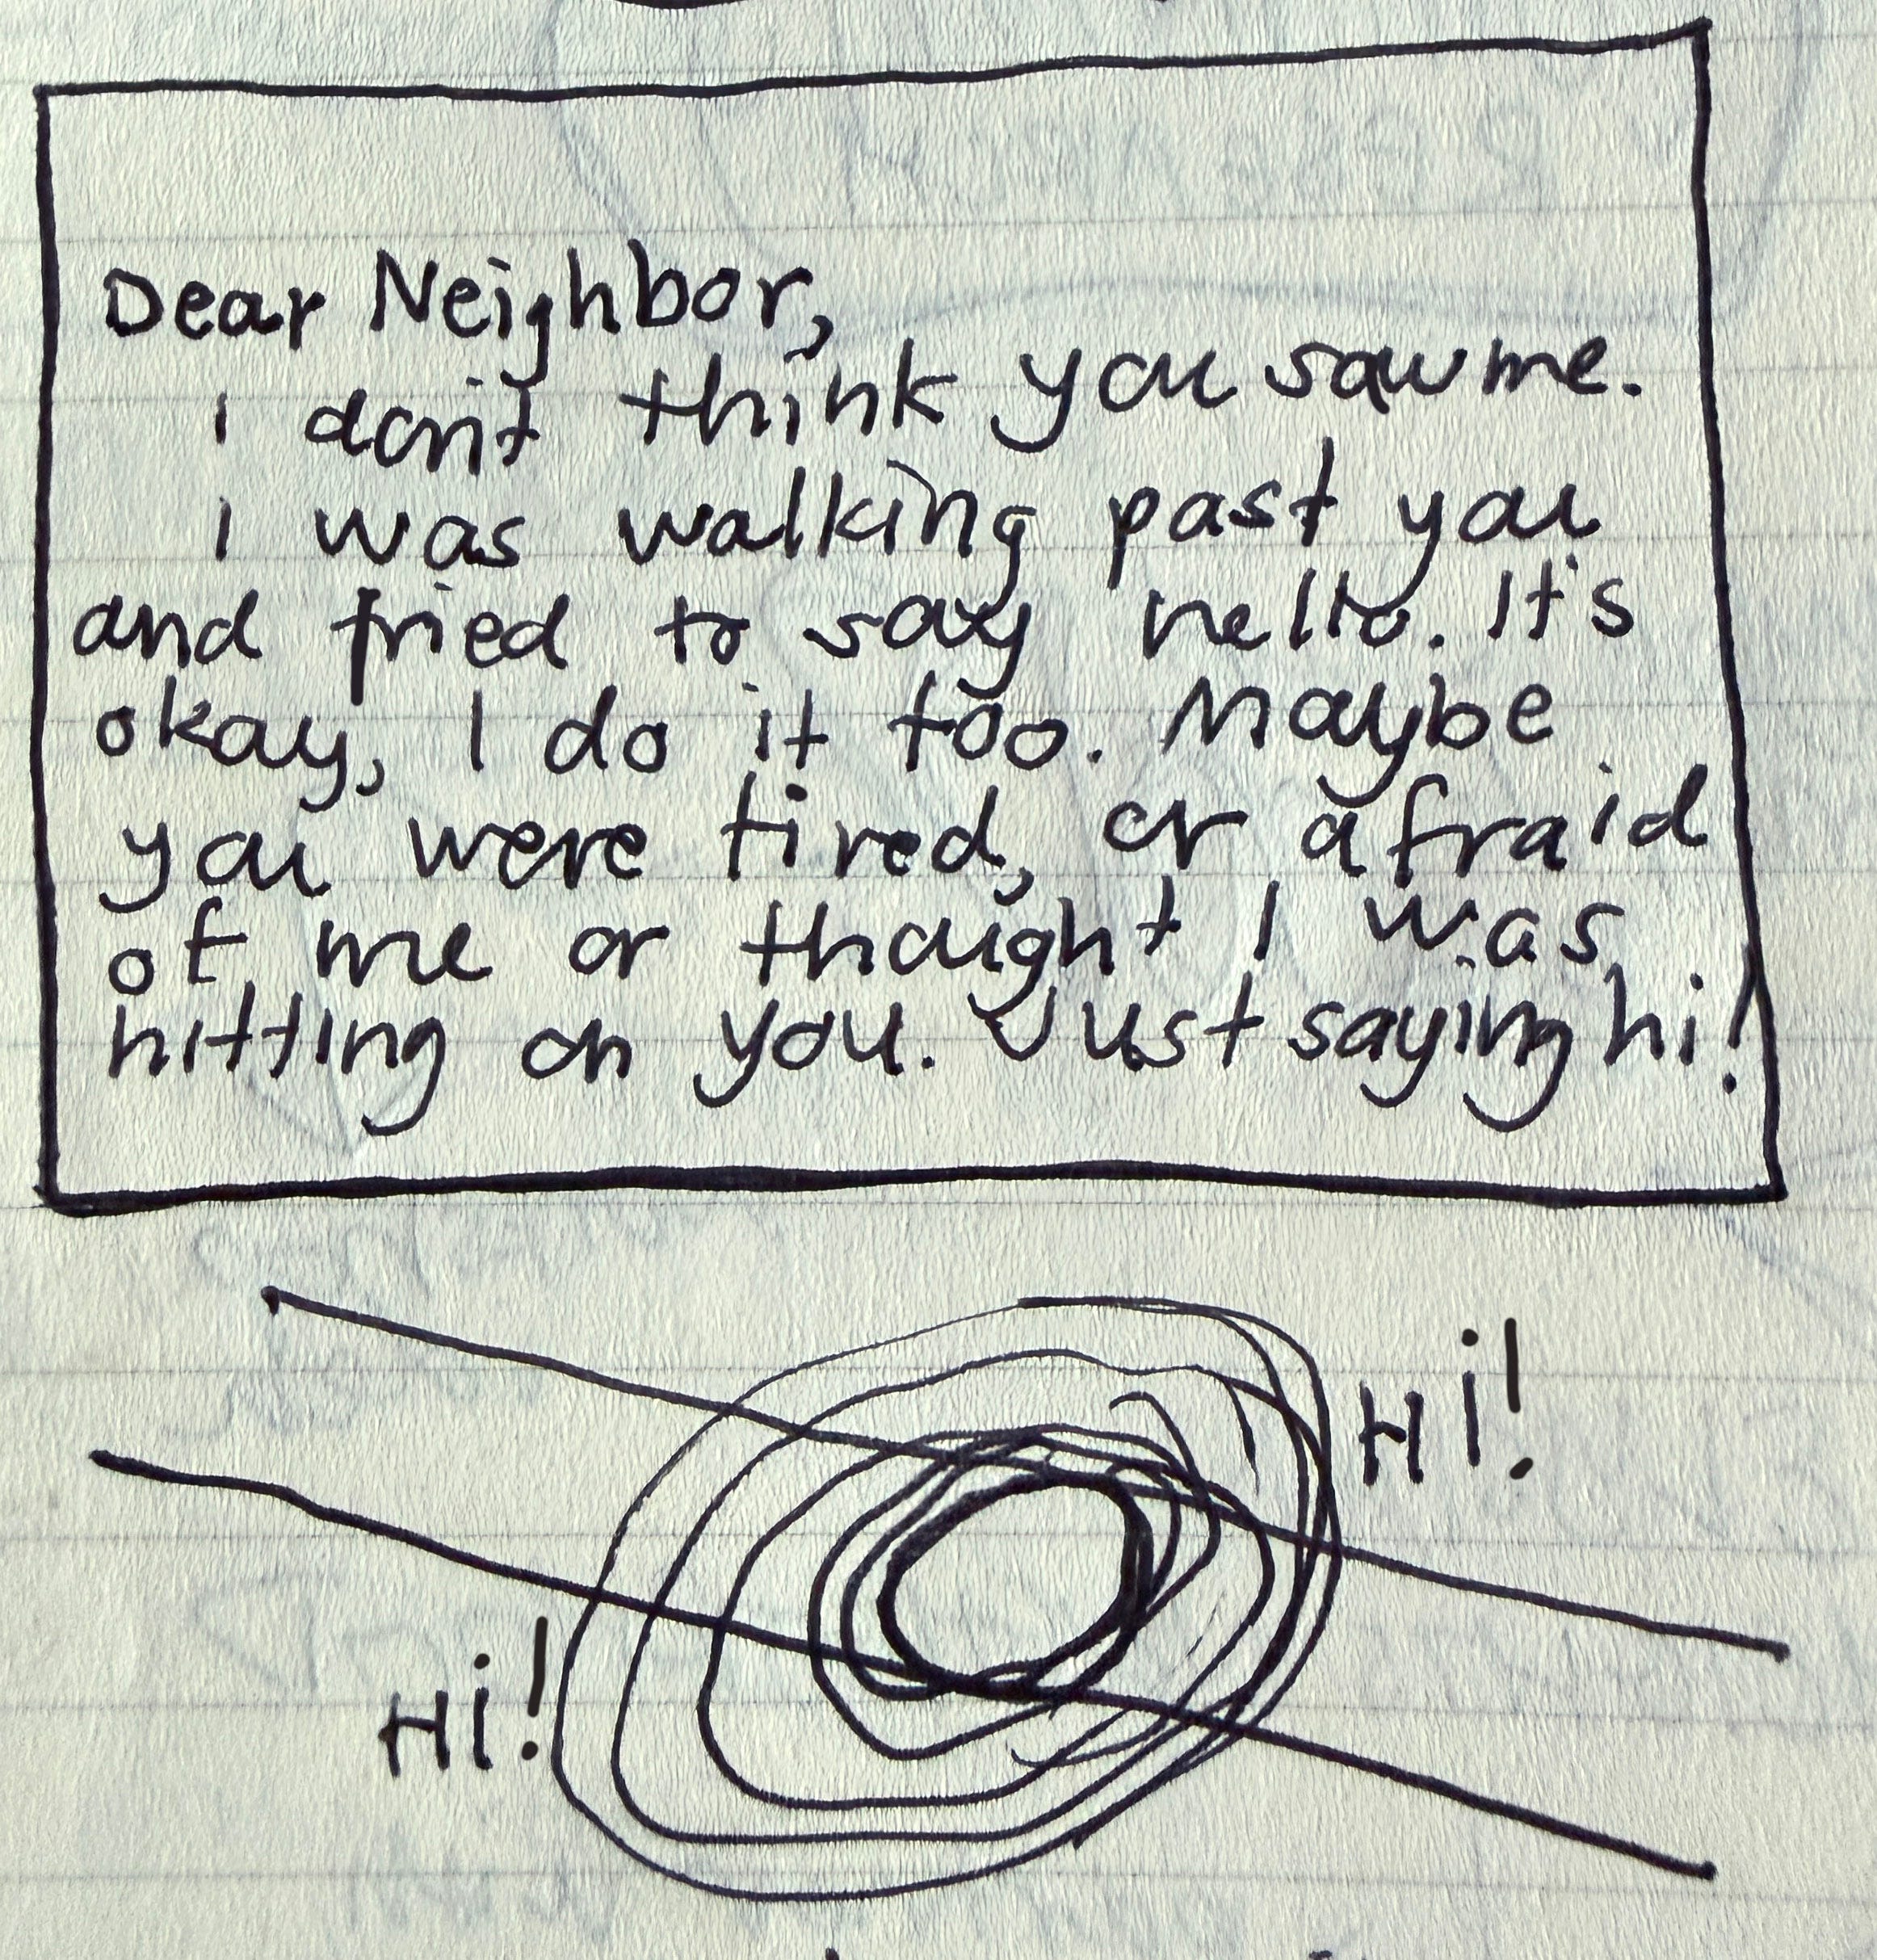 Dear Neighbor,
I don't think you saw me.
I was walking past you
and tried to say hello. It's
okay, I do it too. Maybe
you were tired, or afraid
of me or thought I was
hitting on you. Just saying hi!
Hi!
Hi!